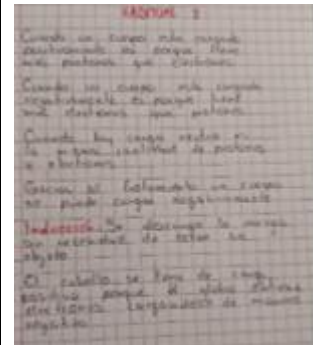 Cuando un cuerpo esta cargado
positivamente es porque tiene
mas protones que electrones
Cuando un cuerpo esta cargado
negativamente es porque tiene
mas electrones que protones
Cuando hay carga neutra es
la misma cantidad de protones
y electrones
Gracias al frotamiento un cuerpo
se puede cargar negativamente
Inducción: Se descarga la energia
sin necesidad de tocar un
objeto
El cabello se llena de carga
positiva porque el globo
electrones cargandose de manera
negativa